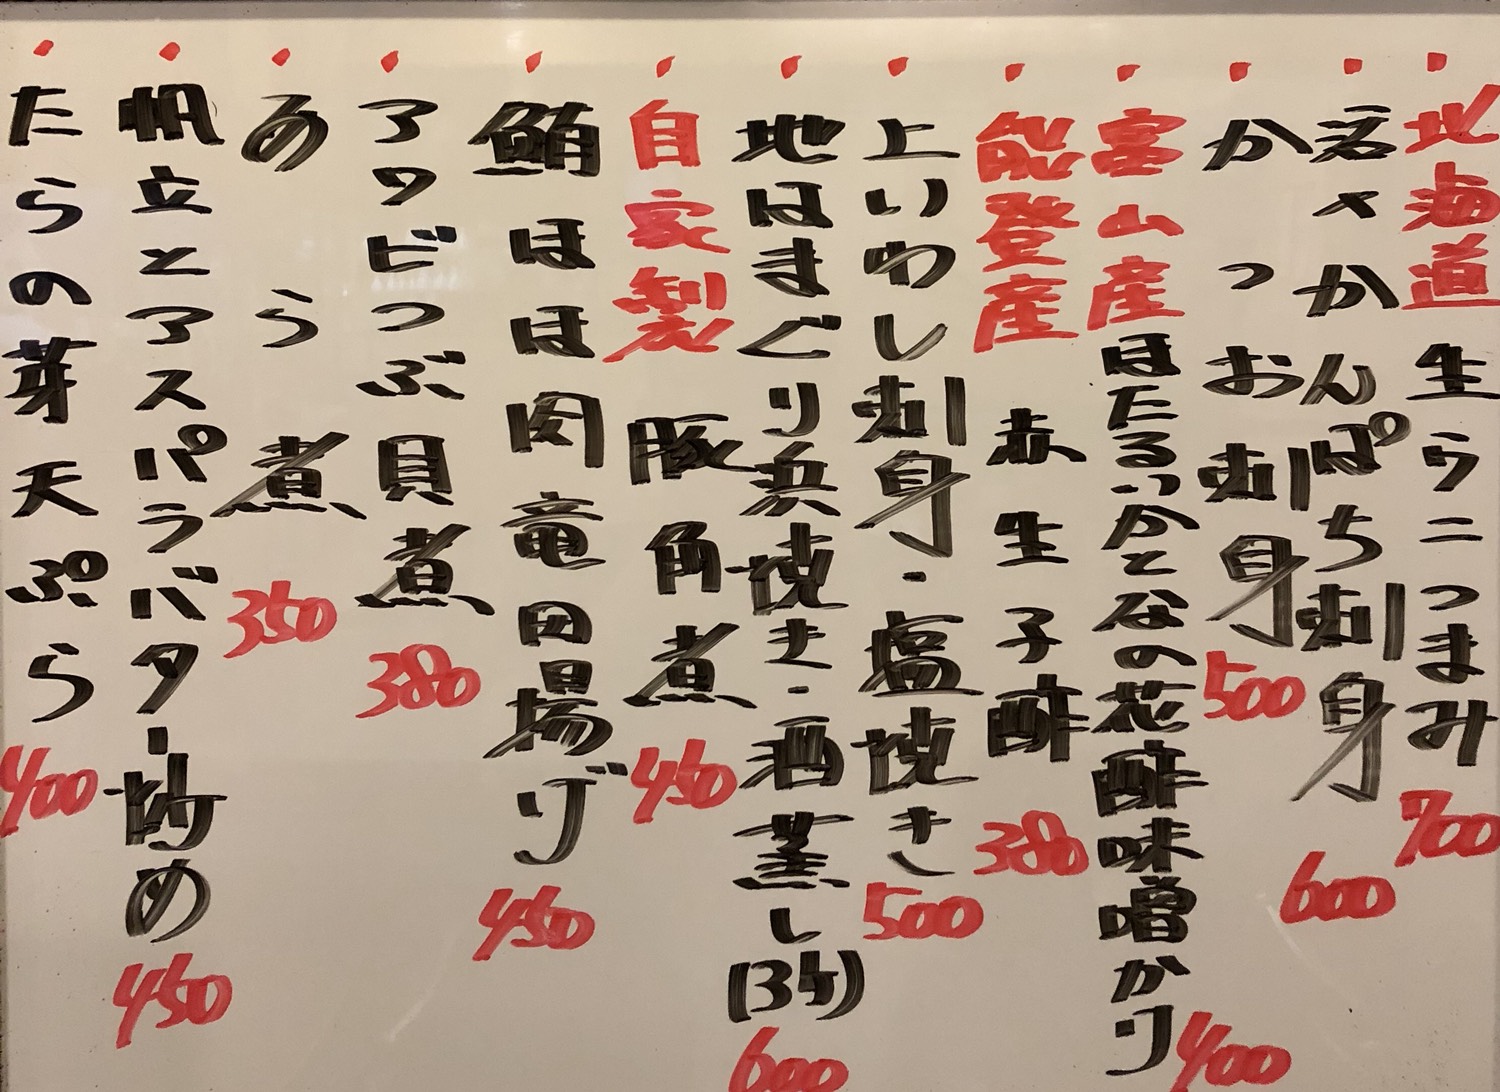 北海道 生ウニつまみ 700
かんぱち刺身 600
かつお刺身 500
富山産ほたるいかとなの花酢味噌かけ 400
能登産 赤生子酢 380
上いわし刺身・塩焼き 500
地はまぐり浜焼き・酒蒸し(3ケ) 600
自家製 豚角煮 450
鮪ほほ肉竜田揚げ 450
アワビつぶ貝煮 380
あら煮 350
帆立とアスパラバター炒め 450
たらの芽天ぷら 400